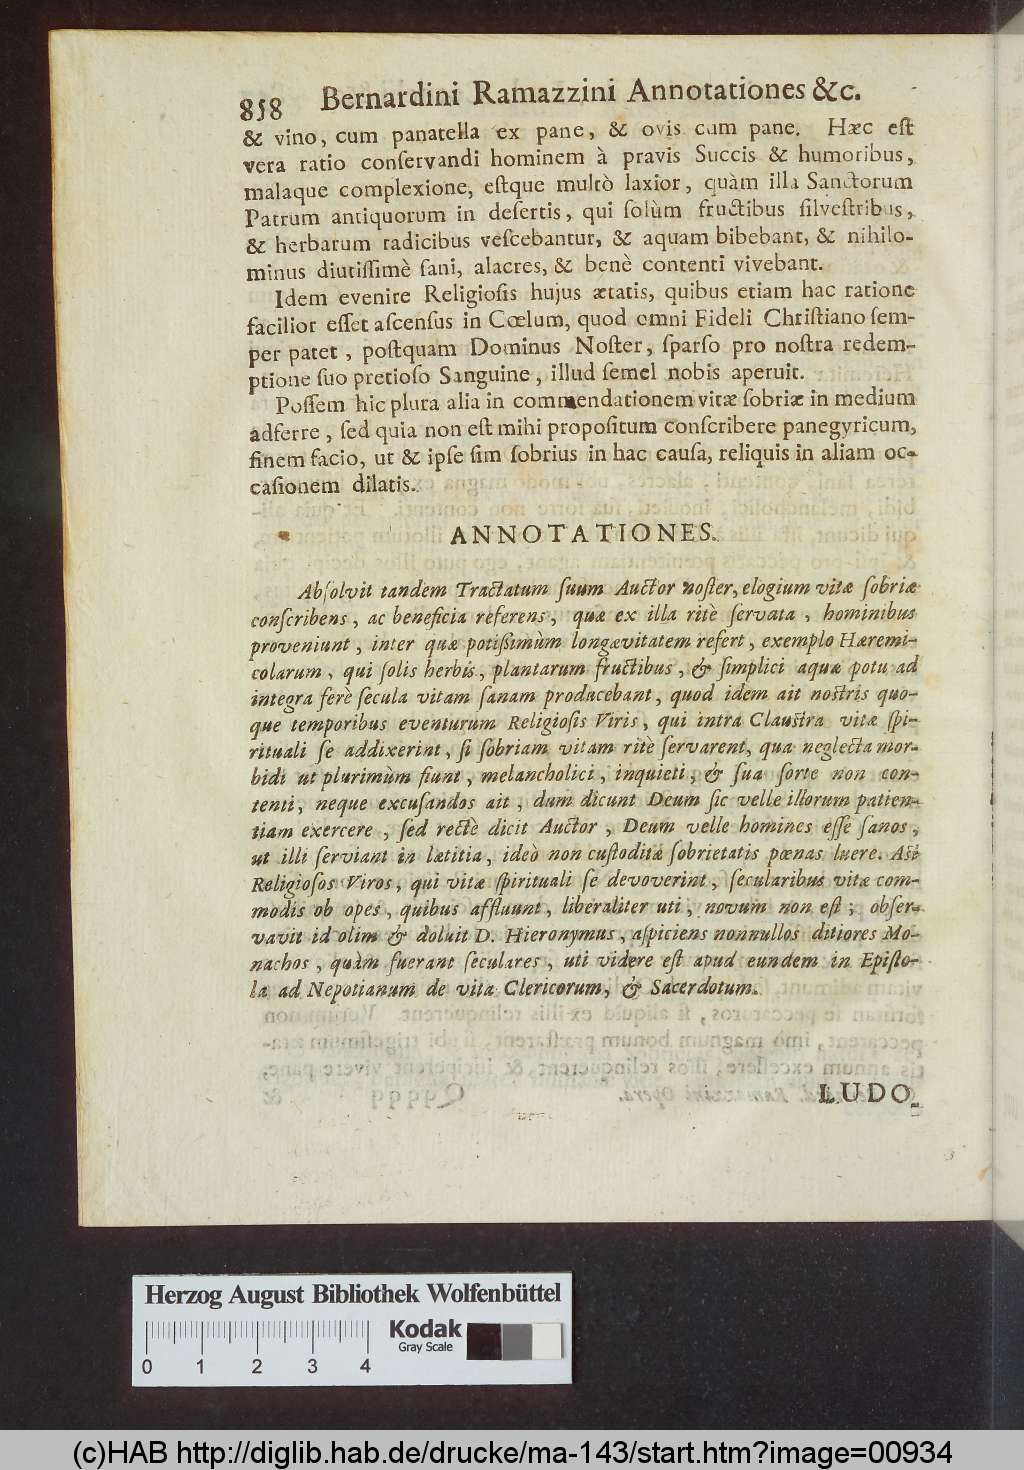 858 Bernardini Ramazzini Annotationes &c.
& vino, cum panatella ex pane, & ovis cum pane. Hæc eſt
vera ratio conſervandi hominem à pravis Succis & humoribus,
malaque complexione, eſtque multò laxior, quàm illa Sanctorum
Patrum antiquorum in deſertis, qui ſolùm fructibus ſilveſtribus,
& herbarum radicibus veſcebantur, & aquam bibebant, & nihilo-
minus diutiſſimè ſani, alacres, & benè contenti vivebant.
Idem evenire Religioſis hujus ætatis, quibus etiam hac ratione
facilior eſſet aſcenſus in Cœlum, quod omni Fideli Chriſtiano ſem-
per patet, poſtquam Dominus Noſter, ſparſo pro noſtra redem-
ptione ſuo pretioſo Sanguine, illud ſemel nobis aperuit.
Poſſem hic plura alia in commendationem vitæ ſobriæ in medium
adferre, ſed quia non eſt mihi propoſitum conſcribere panegyricum,
finem facio, ut & ipſe ſim ſobrius in hac cauſa, reliquis in aliam oc-
caſionem dilatis.
ANNOTATIONES.
Abſolvit tandem Tractatum ſuum Auctor noſter, elogium vitæ ſobriæ
conſcribens, ac beneficia referens, quæ ex illa ritè ſervata, hominibus
proveniunt, inter quæ potiſſimùm longævitatem refert, exemplo Hæremi-
colarum, qui ſolis herbis, plantarum fructibus, & ſimplici aquæ potu ad
integra ferè ſecula vitam ſanam producebant, quod idem ait noſtris quo-
que temporibus eventurum Religioſis Viris, qui intra Clauſtra vitæ ſpi-
rituali ſe addixerint, ſi ſobriam vitam ritè ſervarent, qua neglecta mor-
bidi ut plurimùm fiunt, melancholici, inquieti, & ſua ſorte non con-
tenti, neque excuſandos ait, dum dicunt Deum ſic velle illorum patien-
tiam exercere, ſed rectè dicit Auctor, Deum velle homines eſſe ſanos,
ut illi ſerviant in lætitia, ideò non cuſtoditæ ſobrietatis pœnas luere. Aſt
Religioſos Viros, qui vitæ ſpirituali ſe devoverint, ſecularibus vitæ com-
modis ob opes, quibus affluunt, liberaliter uti, novum non eſt; obſer-
vavit id olim & doluit D. Hieronymus, aſpiciens nonnullos ditiores Mo-
nachos, quàm fuerant ſeculares, uti videre eſt apud eundem in Epiſto-
la ad Nepotianum de vita Clericorum, & Sacerdotum.
LUDO-
Herzog August Bibliothek Wolfenbüttel
Kodak
Gray Scale
0 1 2 3 4
(c)HAB http://diglib.hab.de/drucke/ma-143/start.htm?image=00934